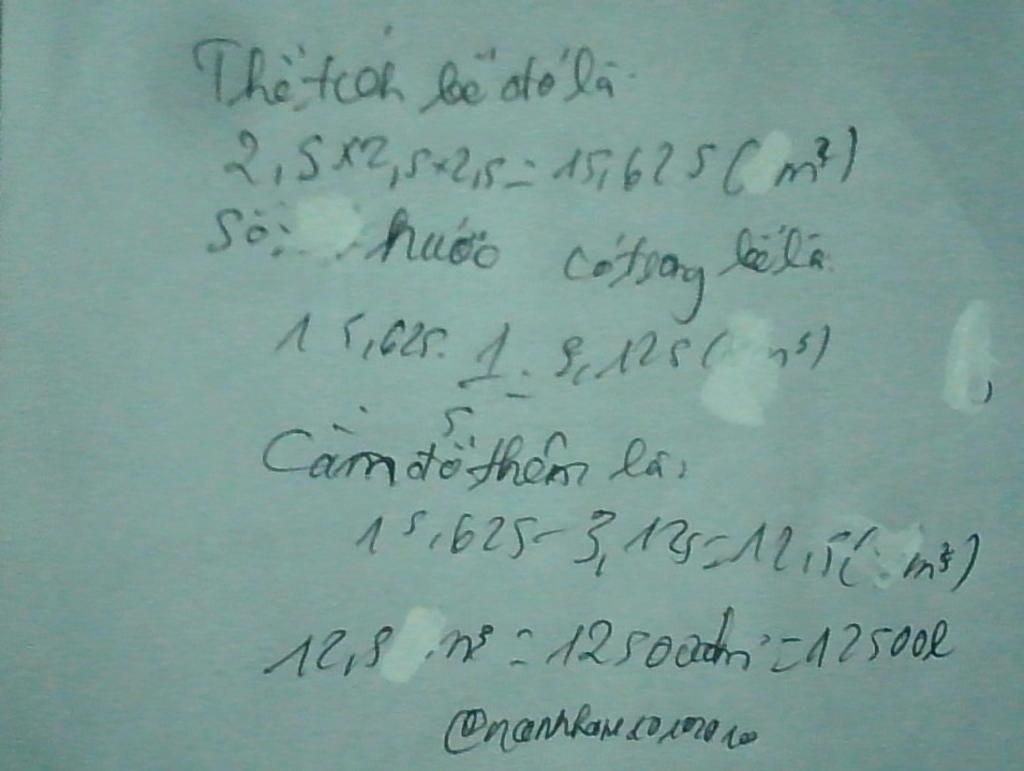 Thể tích bể đó là
2,5×2,5×2,5=15,625(m³)
Số nước có trong bể là
15,625. 1/5 = 3,125(m³)
Cần đổ thêm là,
15,625-3,125=12,5(m³)
12,5 m³ = 12500dm³=12500l